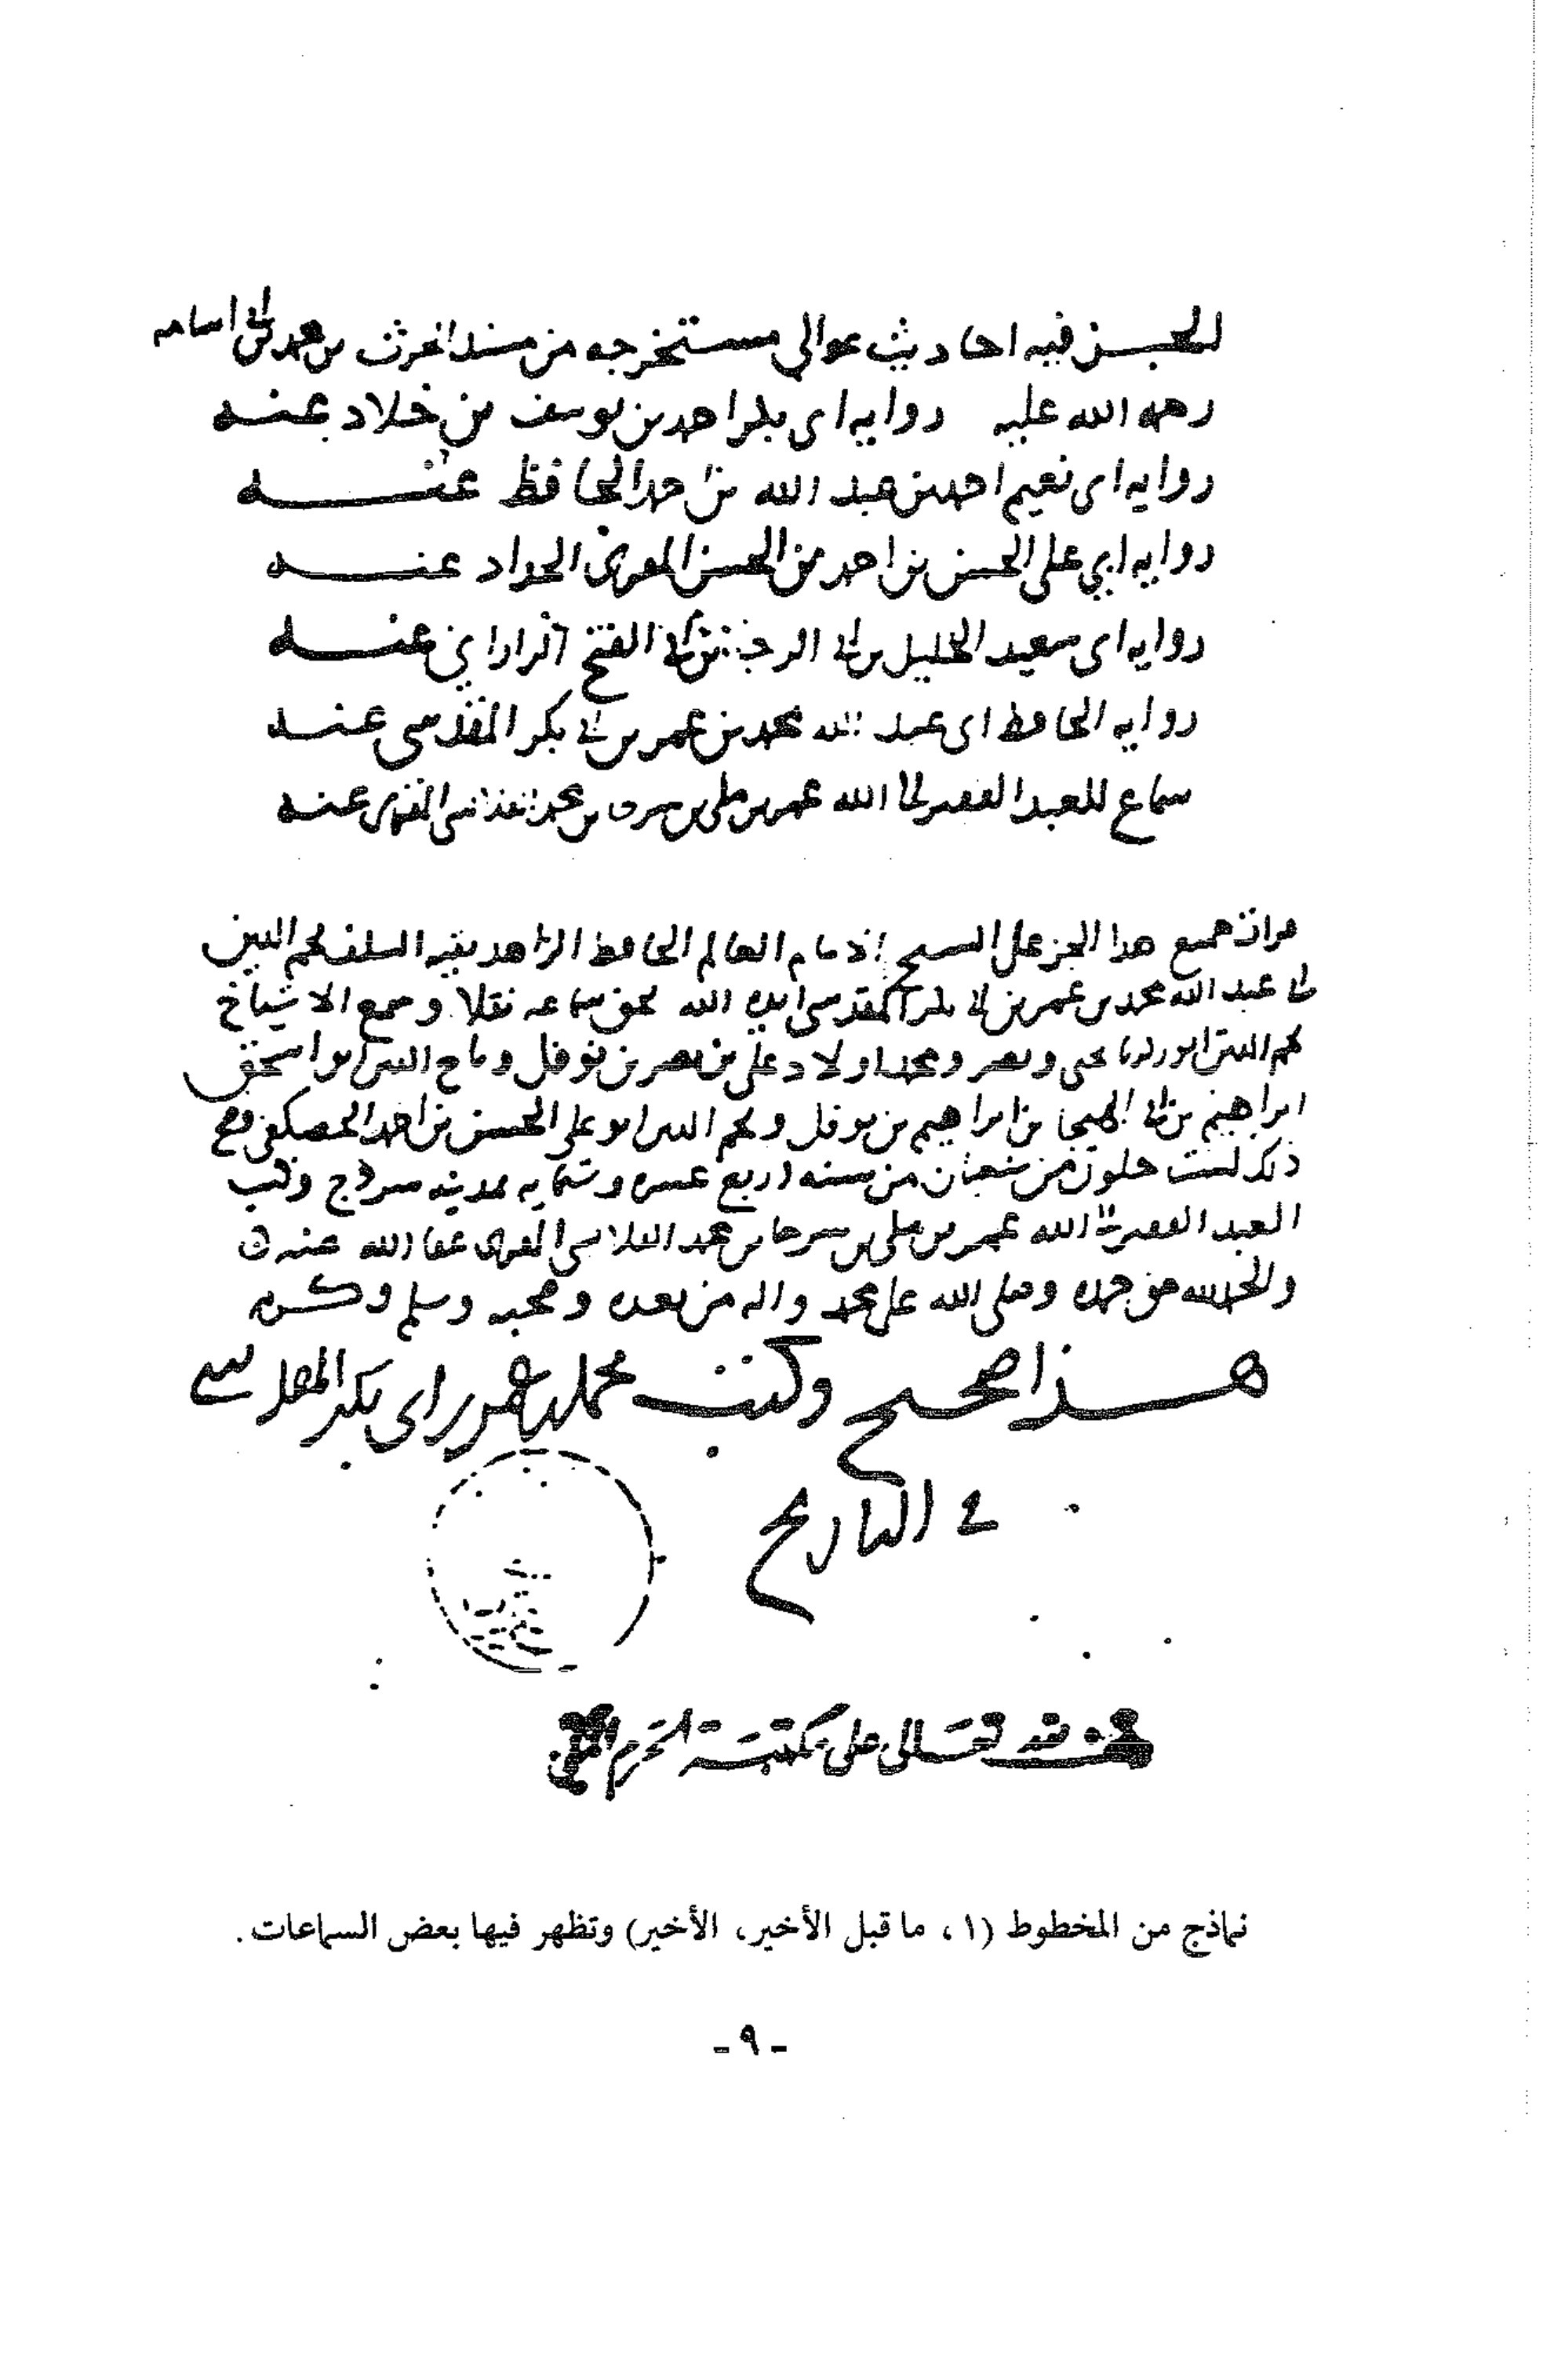 الجـــز فيه احاديث عوالي مستخرجه من مسند الحرث بن محمد بن ابي اسامه
رحمه الله عليه روايه ابى بكر احمد بن يوسف بن خلاد عنـه
روايه ابى نعيم احمد بن عبد الله بن احمد الحافظ عنـــه
روايه ابي على الحسن بن احمد بن الحسن المقرئ الحداد عنـــه
روايه ابى سعيد الخليل بن ابي الرجا بن ابي الفتح الراراني عنـــه
روايه الحافظ ابى عبد الله محمد بن عمر بن ابي بكر المقدسى عنـــه
سماع للعبد الفقير الى الله عمر بن على بن محمد عنـــه
قرات جميع هذا الجز على الشيخ الامام العالم الحافظ الزاهد بقيه السلف نجم الدين
ابي عبد الله محمد بن عمر بن ابي بكر المقدسى ايده الله بحق سماعه نقلا وسمع الاشياخ
نجم الدين ابو زكريا يحيى ونصر ومحمد اولاد على بن نصر بن نوفل وتاج الدين ابو اسحق
ابراهيم بن ابي الهيجا بن ابراهيم بن نوفل ونجم الدين ابو على الحسن بن احمد الحصكفي وصح
ذلك لست خلون من شعبان من سنه اربع عشره وستمايه بمدينه سروج وكتب
العبد الفقير الى الله عمر بن على بن محمد عفا الله عنه
والحمد لله حق حمده وصلى الله على محمد واله من بعده وصحبه وسلم وكرم
هــذا صحيح وكتب محمد بن عمر بن ابى بكر المقدسي
في التاريخ
وقف تعالى على مكتبة الحرم المكي
نماذج من المخطوط (١ ، ما قبل الأخير، الأخير) وتظهر فيها بعض السماعات .
- ٩ -